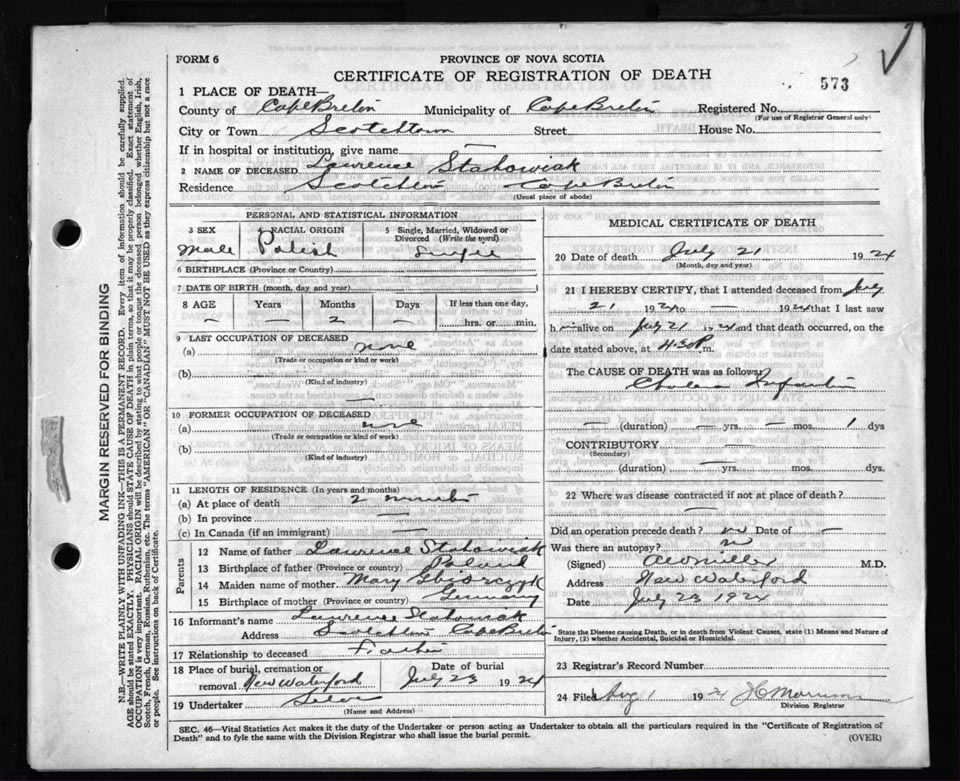 FORM 6
PROVINCE OF NOVA SCOTIA
CERTIFICATE OF REGISTRATION OF DEATH
573
1 PLACE OF DEATH—
County of Cape Breton Municipality of Cape Breton Registered No.
(For use of Registrar General only)
City or Town Scotchtown Street House No.
If in hospital or institution, give name —
2 NAME OF DECEASED Lawrence Stahowiak
Residence Scotchtown Cape Breton
(Usual place of abode)
PERSONAL AND STATISTICAL INFORMATION
3 SEX
Male
4 RACIAL ORIGIN
Polish
5 Single, Married, Widowed or Divorced (Write the word)
Single
6 BIRTHPLACE (Province or Country)
7 DATE OF BIRTH (month, day and year)
8 AGE Years Months Days If less than one day,
— — 2 — hrs. or min.
9 LAST OCCUPATION OF DECEASED
(a) none
(Trade or occupation or kind or work)
(b)
(Kind of industry)
—
10 FORMER OCCUPATION OF DECEASED
(a) none
(Trade or occupation or kind of work)
(b)
(Kind of industry)
—
11 LENGTH OF RESIDENCE (In years and months)
(a) At place of death 2 months
(b) In province —
(c) In Canada (if an immigrant) —
Parents
12 Name of father Lawrence Stahowiak
13 Birthplace of father (Province or country) Poland
14 Maiden name of mother Mary
15 Birthplace of mother (Province or country) Germany
16 Informant's name Lawrence Stahowiak
Address Scotchtown Cape Breton
17 Relationship to deceased Father
18 Place of burial, cremation or removal New Waterford
Date of burial July 23 1924
19 Undertaker
(Name and Address)
MEDICAL CERTIFICATE OF DEATH
20 Date of death July 21 1924
(Month, day and year)
21 I HEREBY CERTIFY, that I attended deceased from July
21 1924 to — 1924 that I last saw
him alive on July 21 1924 and that death occurred, on the
date stated above, at 4.30 P m.
The CAUSE OF DEATH was as follows:
Cholera Infantum
— (duration) — yrs. — mos. 1 dys
CONTRIBUTORY —
(Secondary)
(duration) — yrs. mos. dys.
22 Where was disease contracted if not at place of death?
—
Did an operation precede death? no Date of —
Was there an autopsy? no
(Signed) M.D.
Address New Waterford
Date July 23 1924
State the Disease causing Death, or in death from Violent Causes, state (1) Means and Nature of
Injury, (2) whether Accidental, Suicidal or Homicidal.
23 Registrar's Record Number
24 Filed Aug 1 1924
Division Registrar
SEC. 46—Vital Statistics Act makes it the duty of the Undertaker or person acting as Undertaker to obtain all the particulars required in the "Certificate of Registration of
Death" and to fyle the same with the Division Registrar who shall issue the burial permit. (OVER)
MARGIN RESERVED FOR BINDING
N.B.—WRITE PLAINLY WITH UNFADING INK—THIS IS A PERMANENT RECORD. Every item of information should be carefully supplied.
AGE should be stated EXACTLY. PHYSICIANS should STATE CAUSE OF DEATH in plain terms, so that it may be properly classified. Exact statement of
OCCUPATION is very important. RACIAL ORIGIN will be described by stating to what people or tongue the deceased person belonged whether English, Irish,
Scotch, French, German, Russian, Ruthenian, etc. The terms "AMERICAN" OR "CANADIAN" MUST NOT BE USED as they express citizenship but not a race
or people. See instructions on back of Certificate.